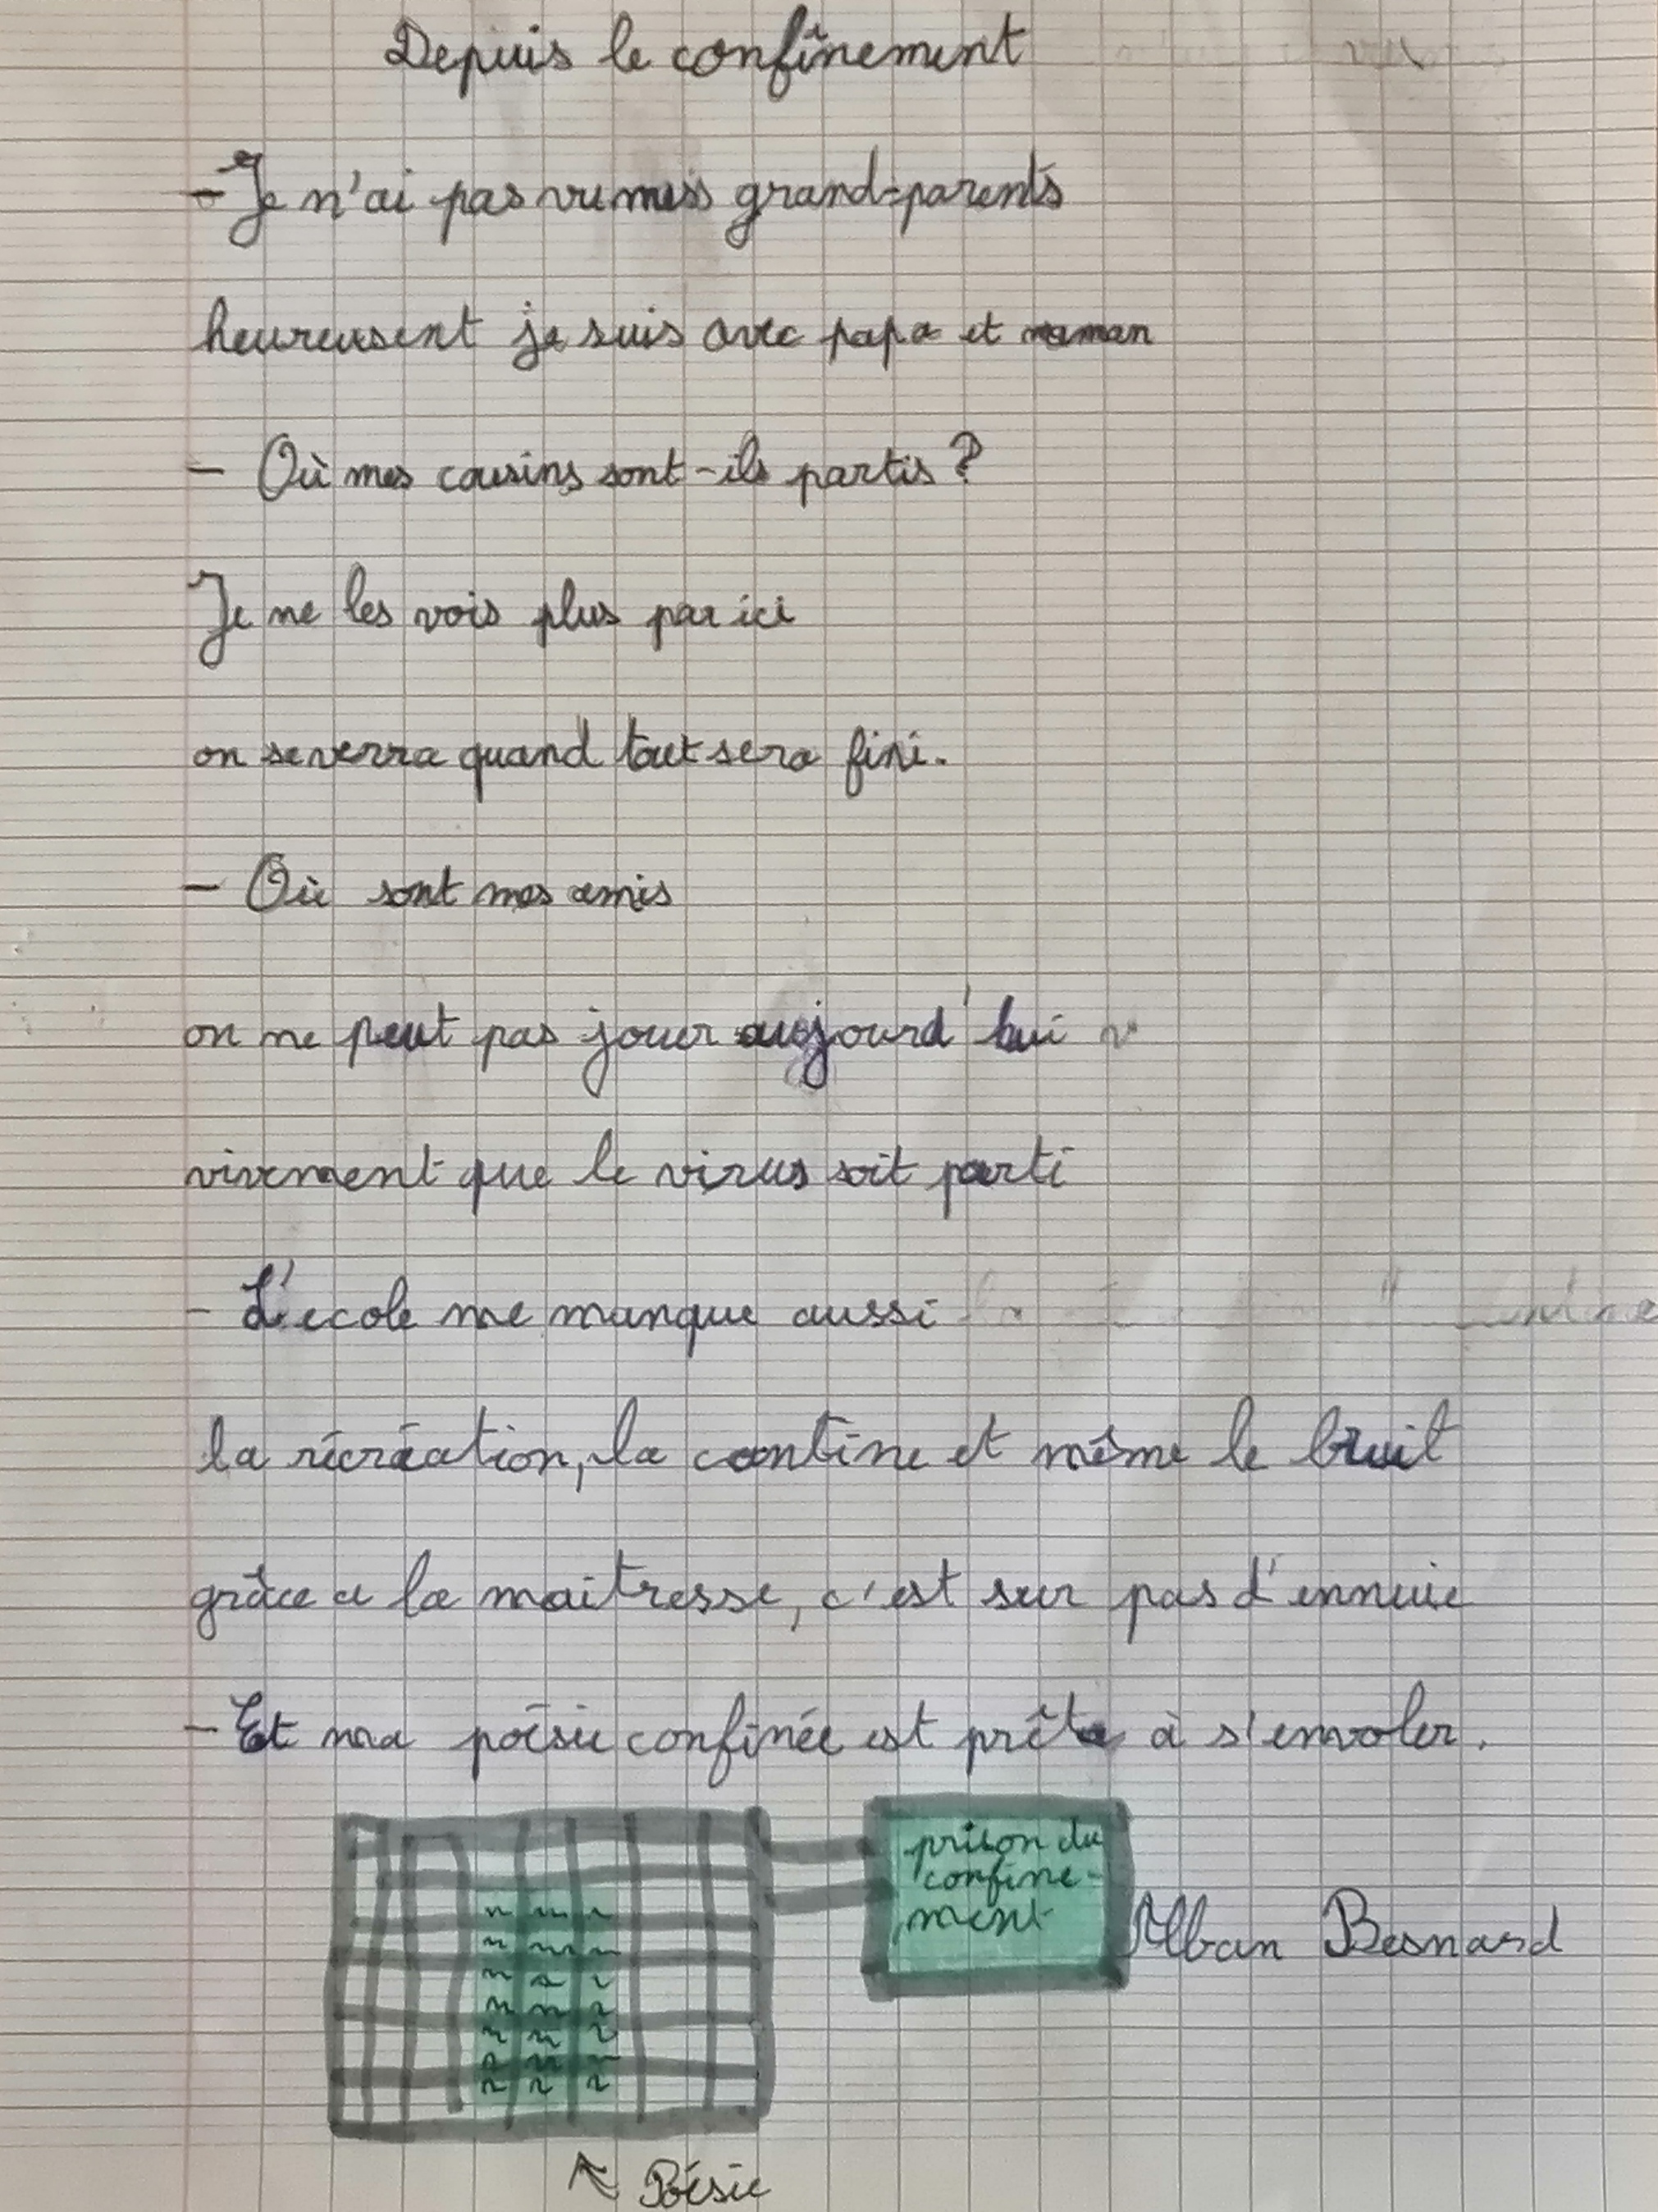 Depuis le confinement
- Je n'ai pas vu mes grand-parents
heureusent je suis avec papa et maman
- Où mes cousins sont-ils partis ?
Je ne les vois plus par ici
on se verra quand tout sera fini.
- Où sont mes amis
on ne peut pas jouer aujourd'hui
vivement que le virus soit parti
- L'ecole me manque aussi
la récréation, la cantine et même le bruit
grâce a la maitresse, c'est sur pas d'ennuie
- Et ma poésie confinée est prête à s'envoler.
prison du
confine-
ment
Alban Besnard
Poésie